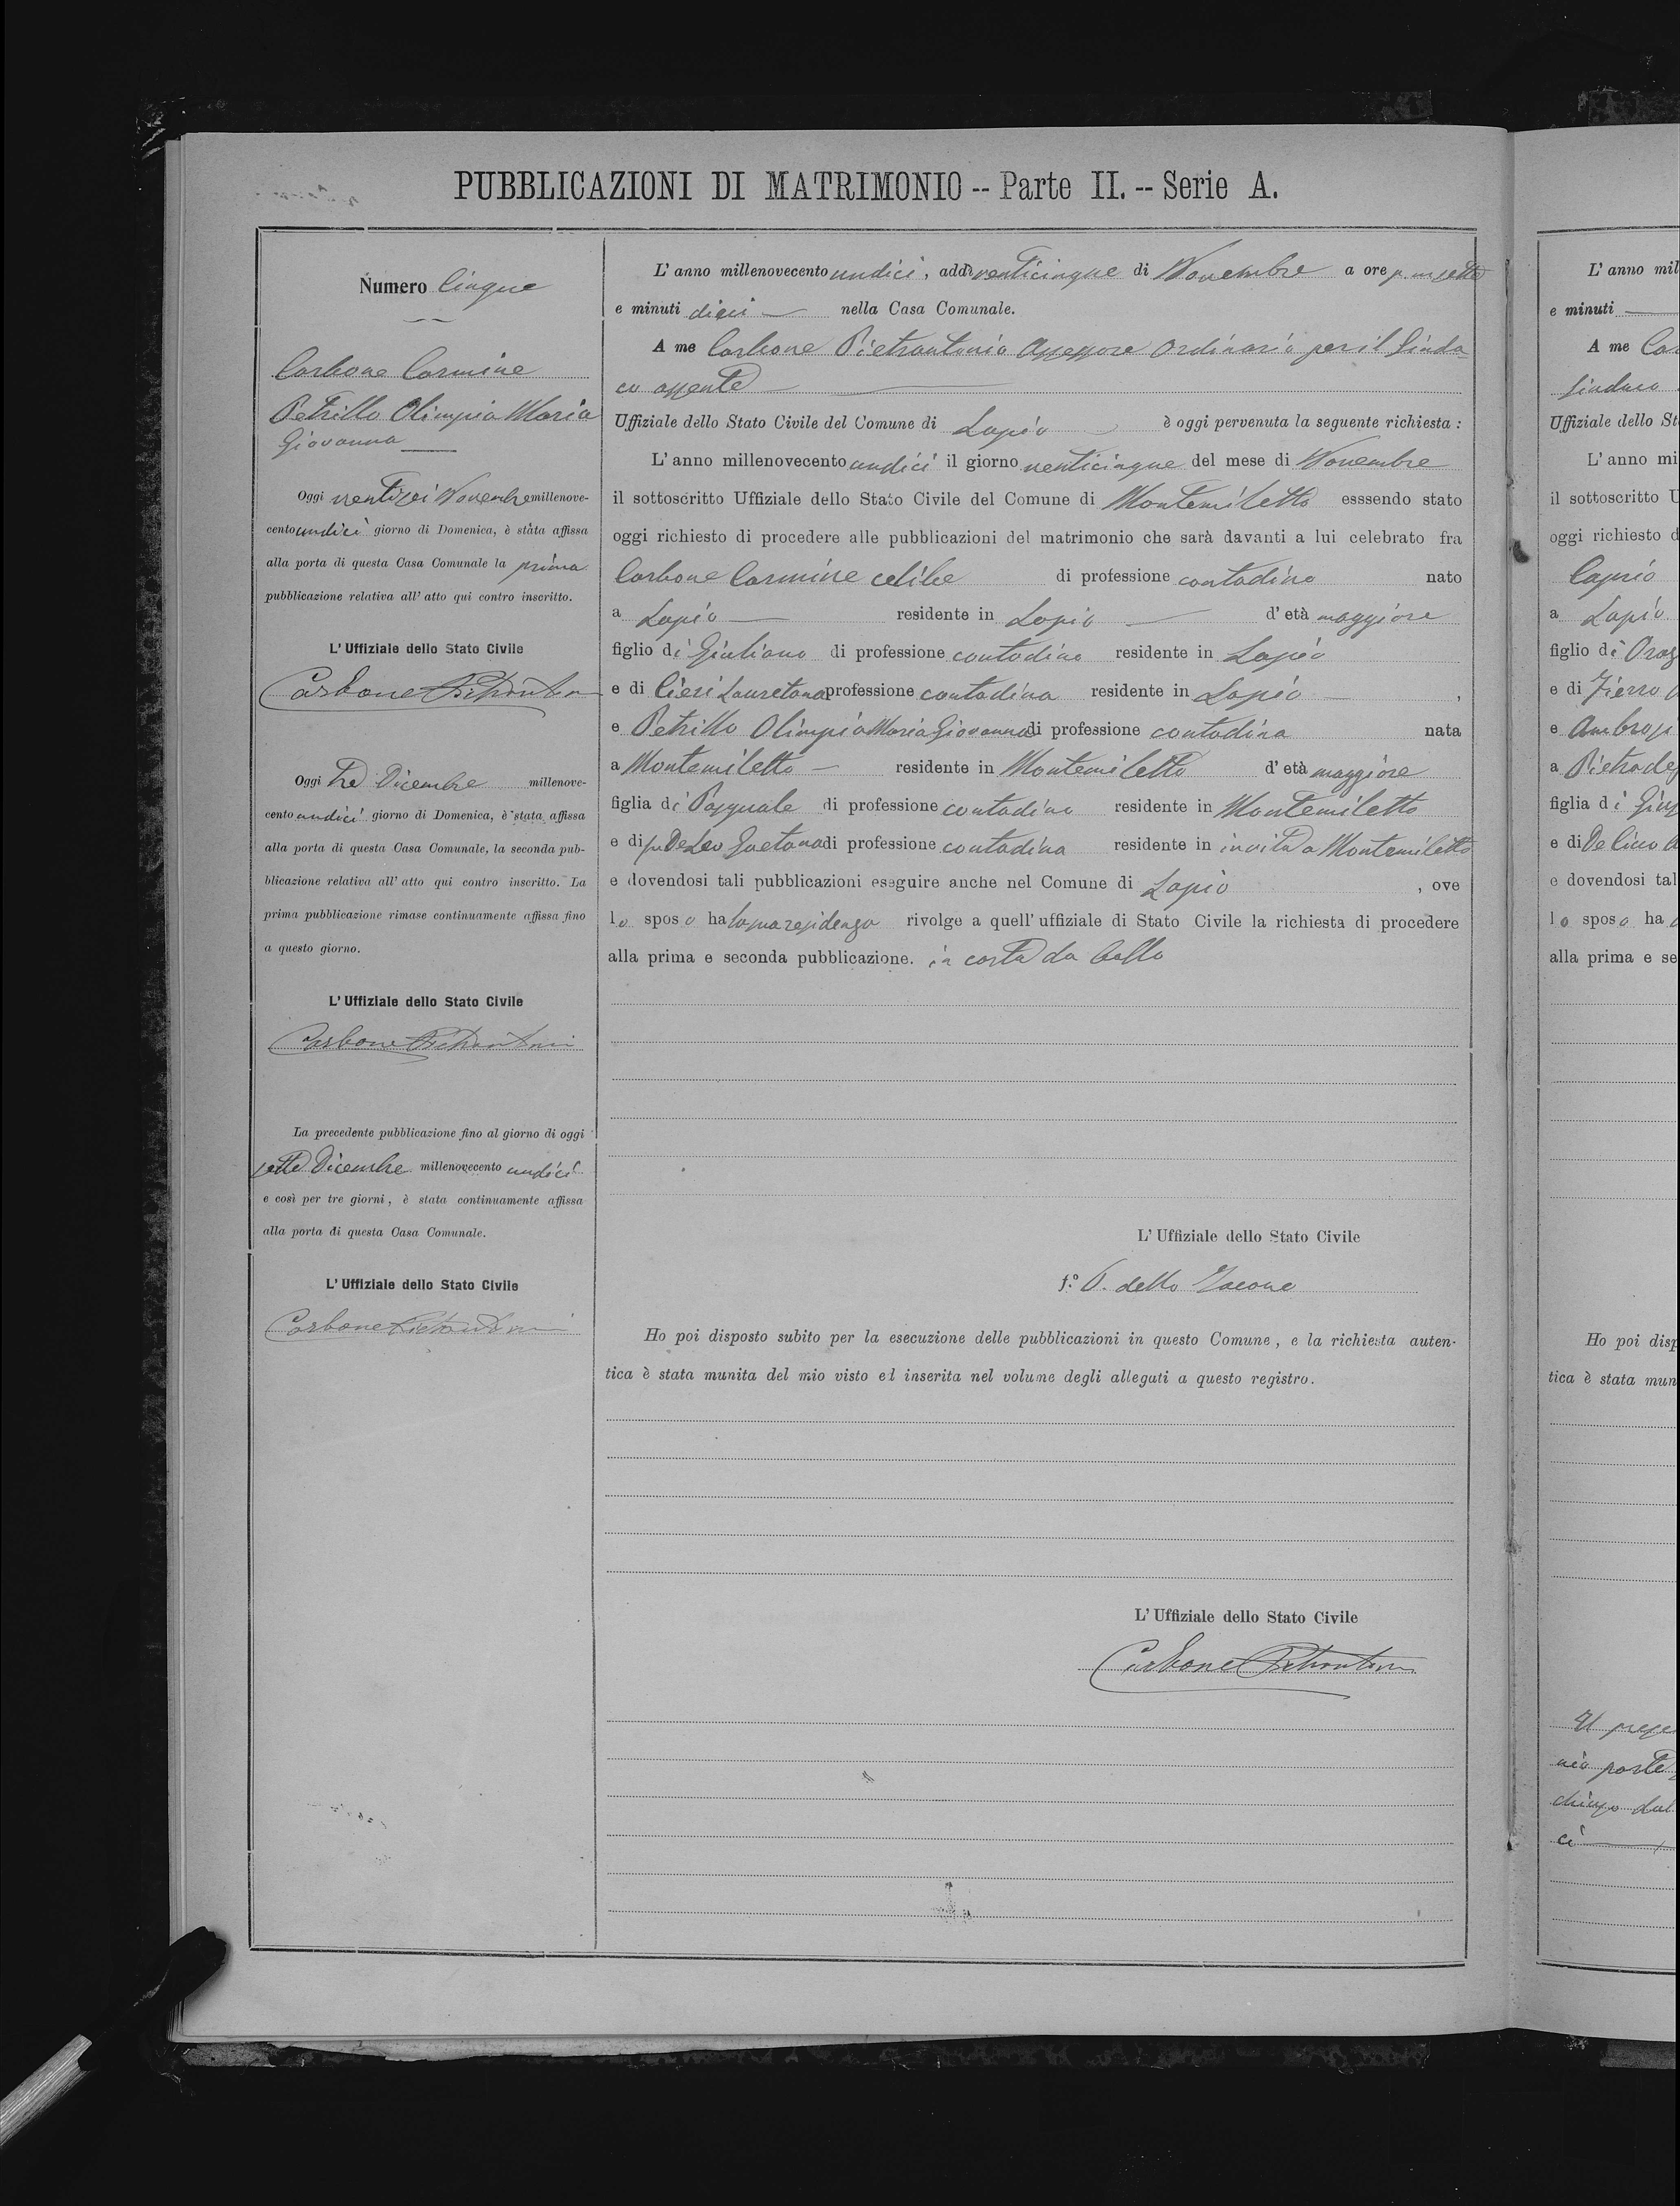 PUBBLICAZIONI DI MATRIMONIO -- Parte II. -- Serie A.
Numero Cinque
Carbone Carmine
Petrillo Olimpia Maria
Giovanna
Oggi ventisei Novembre millenove-
cento undici giorno di Domenica, è stata affissa
alla porta di questa Casa Comunale la prima
pubblicazione relativa all' atto qui contro inscritto.
L' Uffiziale dello Stato Civile
Carbone Pietrantonio
Oggi tre Dicembre millenove-
cento undici giorno di Domenica, è stata affissa
alla porta di questa Casa Comunale, la seconda pub-
blicazione relativa all' atto qui contro inscritto. La
prima pubblicazione rimase continuamente affissa fino
a questo giorno.
L' Uffiziale dello Stato Civile
Carbone Pietrantonio
La precedente pubblicazione fino al giorno di oggi
sette Dicembre millenovecento undici
e così per tre giorni, è stata continuamente affissa
alla porta di questa Casa Comunale.
L' Uffiziale dello Stato Civile
Carbone Pietrantonio
L' anno millenovecento undici, addì venticinque di Novembre a ore p. m. sette
e minuti dieci nella Casa Comunale.
A me Carbone Pietrantonio Assessore Ordinario per il Sinda
co assente
Uffiziale dello Stato Civile del Comune di Lapio è oggi pervenuta la seguente richiesta :
L' anno millenovecento undici il giorno venticinque del mese di Novembre
il sottoscritto Uffiziale dello Stato Civile del Comune di Montemiletto esssendo stato
oggi richiesto di procedere alle pubblicazioni del matrimonio che sarà davanti a lui celebrato fra
Carbone Carmine celibe di professione contadino nato
a Lapio residente in Lapio d' età maggiore
figlio di Giuliano di professione contadino residente in Lapio
e di Cieri Lauretana professione contadina residente in Lapio ,
e Petrillo Olimpia Maria Giovanna di professione contadina nata
a Montemiletto residente in Montemiletto d' età maggiore
figlia di Pasquale di professione contadino residente in Montemiletto
e di fu De Leo Gaetana di professione contadina residente in in vita a Montemiletto
e dovendosi tali pubblicazioni eseguire anche nel Comune di Lapio , ove
lo sposo ha la sua residenza rivolge a quell' uffiziale di Stato Civile la richiesta di procedere
alla prima e seconda pubblicazione. in carta da bollo
L' Uffiziale dello Stato Civile
f.o dello Iacono
Ho poi disposto subito per la esecuzione delle pubblicazioni in questo Comune, e la richiesta auten-
tica è stata munita del mio visto ed inserita nel volume degli allegati a questo registro.
L' Uffiziale dello Stato Civile
Carbone Pietrantonio
L' anno mil
e minuti
A me Car
Sindaco
Uffiziale dello St
L' anno mi
il sottoscritto U
oggi richiesto d
a Lapio
figlio di
e di Fierro
e Ambros
a Pietrade
figlia di Gius
e di De
e dovendosi tal
lo sposo ha
alla prima e se
Ho poi disp
tica è stata mun